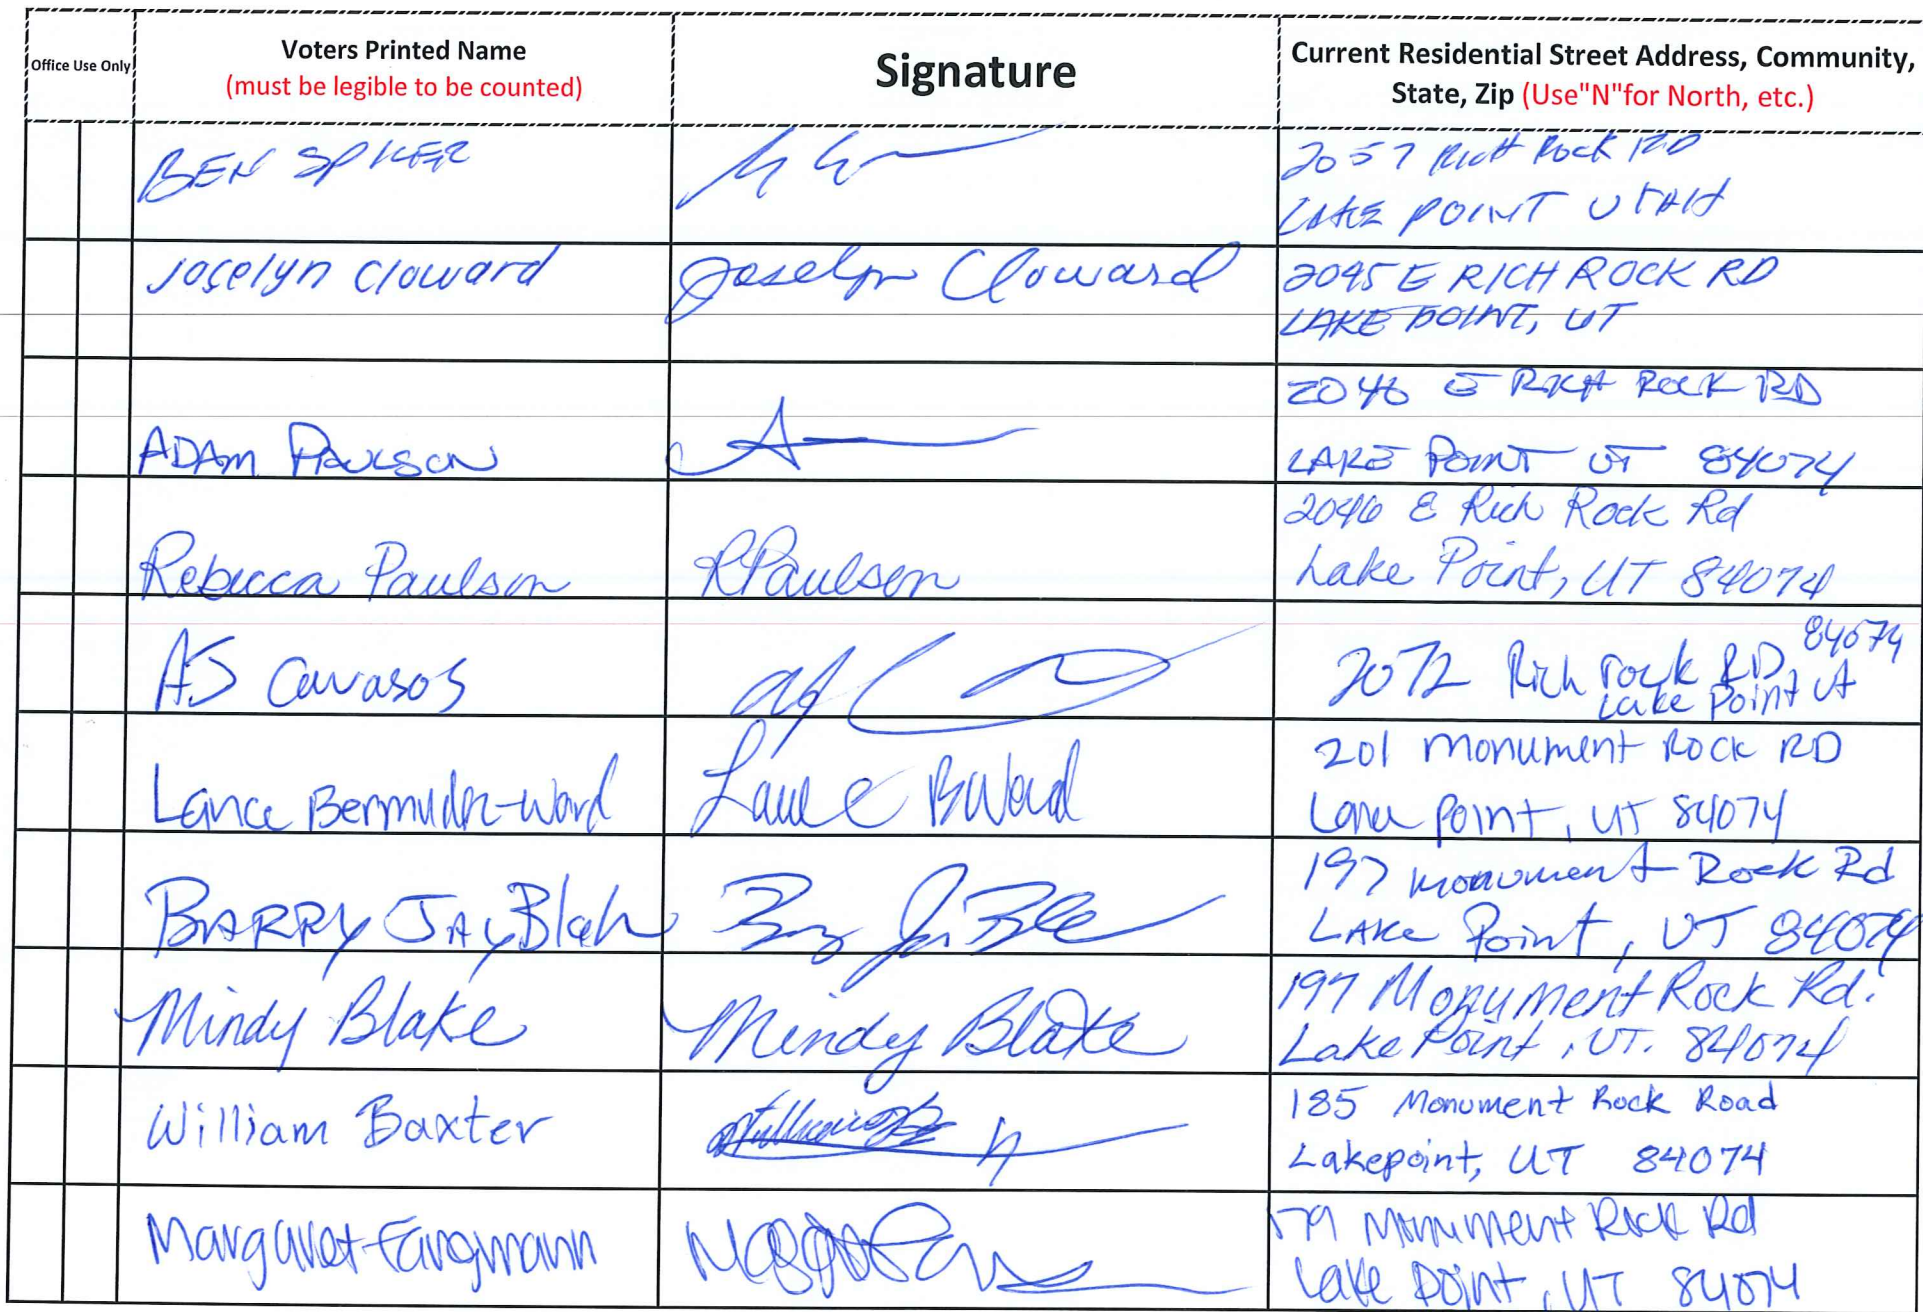 Office Use Only
Voters Printed Name
(must be legible to be counted)
Signature
Current Residential Street Address, Community,
State, Zip (Use"N"for North, etc.)
BEN SPIKER
2057 RICH ROCK RD
LAKE POINT UTAH
Jocelyn Cloward
Joselyn Cloward
2045 E RICH ROCK RD
LAKE POINT, UT
ADAM PAULSON
2046 E RICH ROCK RD
LAKE POINT UT 84074
Rebecca Paulson
RPaulson
2046 E Rich Rock Rd
Lake Point, UT 84074
AJ Cavasos
2072 Rich rock RD 84074
Lake Point Ut
Lance Bermudez-Ward
Lance BWard
201 Monument Rock RD
Lake Point, UT 84074
BARRY JAY Blake
197 Monument Rock Rd
LAKE Point, UT 84074
Mindy Blake
Mindy Blake
197 Monument Rock Rd.
Lake Point, UT. 84074
William Baxter
185 Monument Rock Road
Lakepoint, UT 84074
Margaret Fangmann
179 Monument Rock Rd
Lake Point, UT 84074